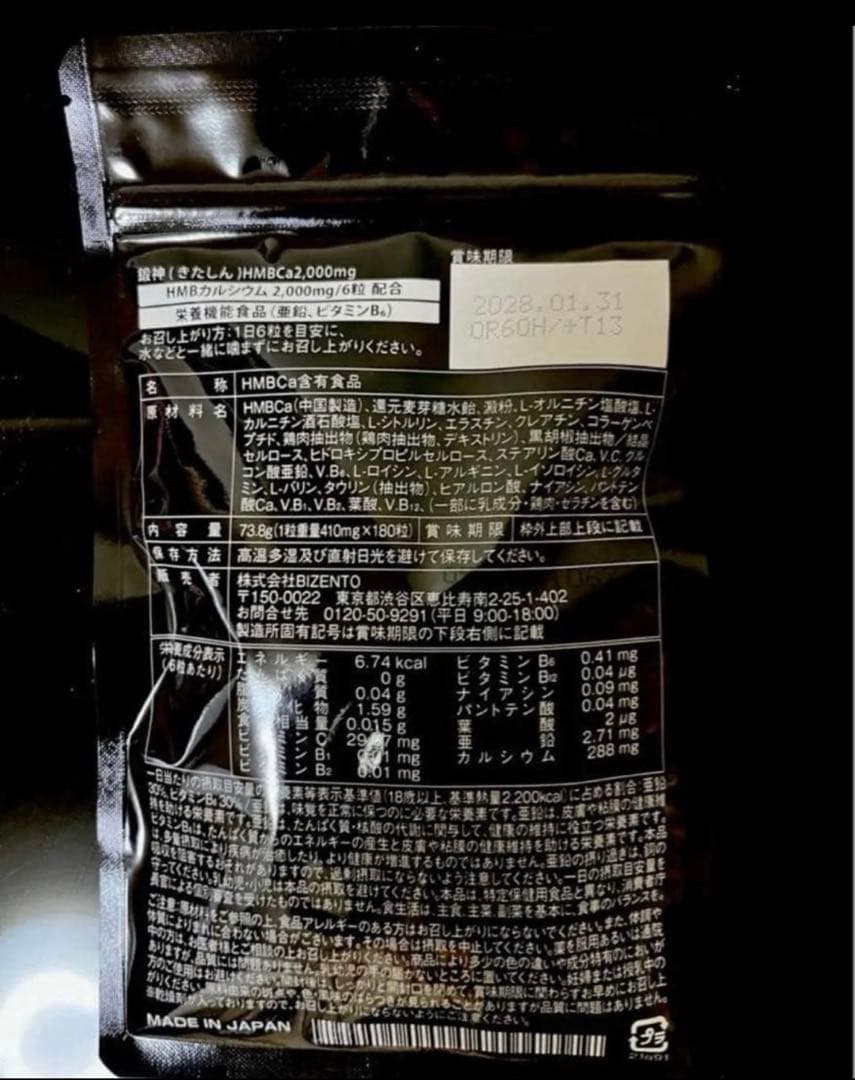 鍛神(きたしん)HMBCa2,000mg
HMBカルシウム 2,000mg/6粒 配合
栄養機能食品(亜鉛、ビタミンB₆)
お召し上がり方:1日6粒を目安に、
水などと一緒に噛まずにお召し上がりください。
賞味期限
2028.01.31
OR60H/+T13
名 称 HMBCa含有食品
原材料名 HMBCa(中国製造)、還元麦芽糖水飴、澱粉、L-オルニチン塩酸塩、L-
カルニチン酒石酸塩、L-シトルリン、エラスチン、クレアチン、コラーゲンペ
プチド、鶏肉抽出物(鶏肉抽出物、デキストリン)、黒胡椒抽出物/結晶
セルロース、ヒドロキシプロピルセルロース、ステアリン酸Ca、V.C、グル
コン酸亜鉛、V.B₆、L-ロイシン、L-アルギニン、L-イソロイシン、L-グルタ
ミン、L-バリン、タウリン(抽出物)、ヒアルロン酸、ナイアシン、パントテン
酸Ca、V.B₁、V.B₂、葉酸、V.B₁₂、(一部に乳成分・鶏肉・ゼラチンを含む)
内容量 73.8g(1粒重量410mg×180粒) 賞味期限 枠外上部上段に記載
保存方法 高温多湿及び直射日光を避けて保存してください。
販売者 株式会社BIZENTO
〒150-0022 東京都渋谷区恵比寿南2-25-1-402
お問合せ先 0120-50-9291(平日 9:00-18:00)
製造所固有記号は賞味期限の下段右側に記載
栄養成分表示
(6粒あたり)
エネルギー 6.74 kcal
たんぱく質 0 g
脂質 0.04 g
炭水化物 1.59 g
食塩相当量 0.015 g
ビタミンC mg
ビタミンB₁ mg
ビタミンB₂ 0.01 mg
ビタミンB₆ 0.41 mg
ビタミンB₁₂ 0.04 μg
ナイアシン 0.09 mg
パントテン酸 0.04 mg
葉酸 2 μg
亜鉛 2.71 mg
カルシウム 288 mg
一日当たりの摂取目安量の栄養素等表示基準値(18歳以上、基準熱量2,200kcal)に占める割合:亜鉛
30%、ビタミンB₆ 30%/亜鉛は、味覚を正常に保つのに必要な栄養素です。亜鉛は、皮膚や粘膜の健康維
持を助ける栄養素です。亜鉛は、たんぱく質・核酸の代謝に関与して、健康の維持に役立つ栄養素です。
ビタミンB₆は、たんぱく質からのエネルギーの産生と皮膚や粘膜の健康維持を助ける栄養素です。本品
は、多量摂取により疾病が治癒したり、より健康が増進するものではありません。亜鉛の摂り過ぎは、銅の
吸収を阻害するおそれがありますので、過剰摂取にならないよう注意してください。一日の摂取目安量を
守ってください。乳幼児・小児は本品の摂取を避けてください。本品は、特定保健用食品と異なり、消費者庁
長官による個別審査を受けたものではありません。食生活は、主食、主菜、副菜を基本に、食事のバランスを。
ご注意:原材料をご参照の上、食品アレルギーのある方はお召し上がりにならないでください。また、体調や
体質によりまれに合わない場合がございます。その場合は摂取を中止してください。薬を服用あるいは通院
中の方は、お医者様とご相談の上お召し上がりください。商品により多少の色の違いや成分特有のにおいが
ありますが、品質には問題ありません。乳幼児の手の届かないところに置いてください。妊婦または授乳中の
方のご使用はお避けください。開封後は、しっかりと開封口を閉めて、賞味期限に関わらずお早めにお召し上
がりください。原料由来の斑点や、色・風味のばらつきが見られることがありますが品質に問題はありません。
※乾燥剤が入っておりますので、お召し上がりにならないようにご注意ください。
MADE IN JAPAN
プラ